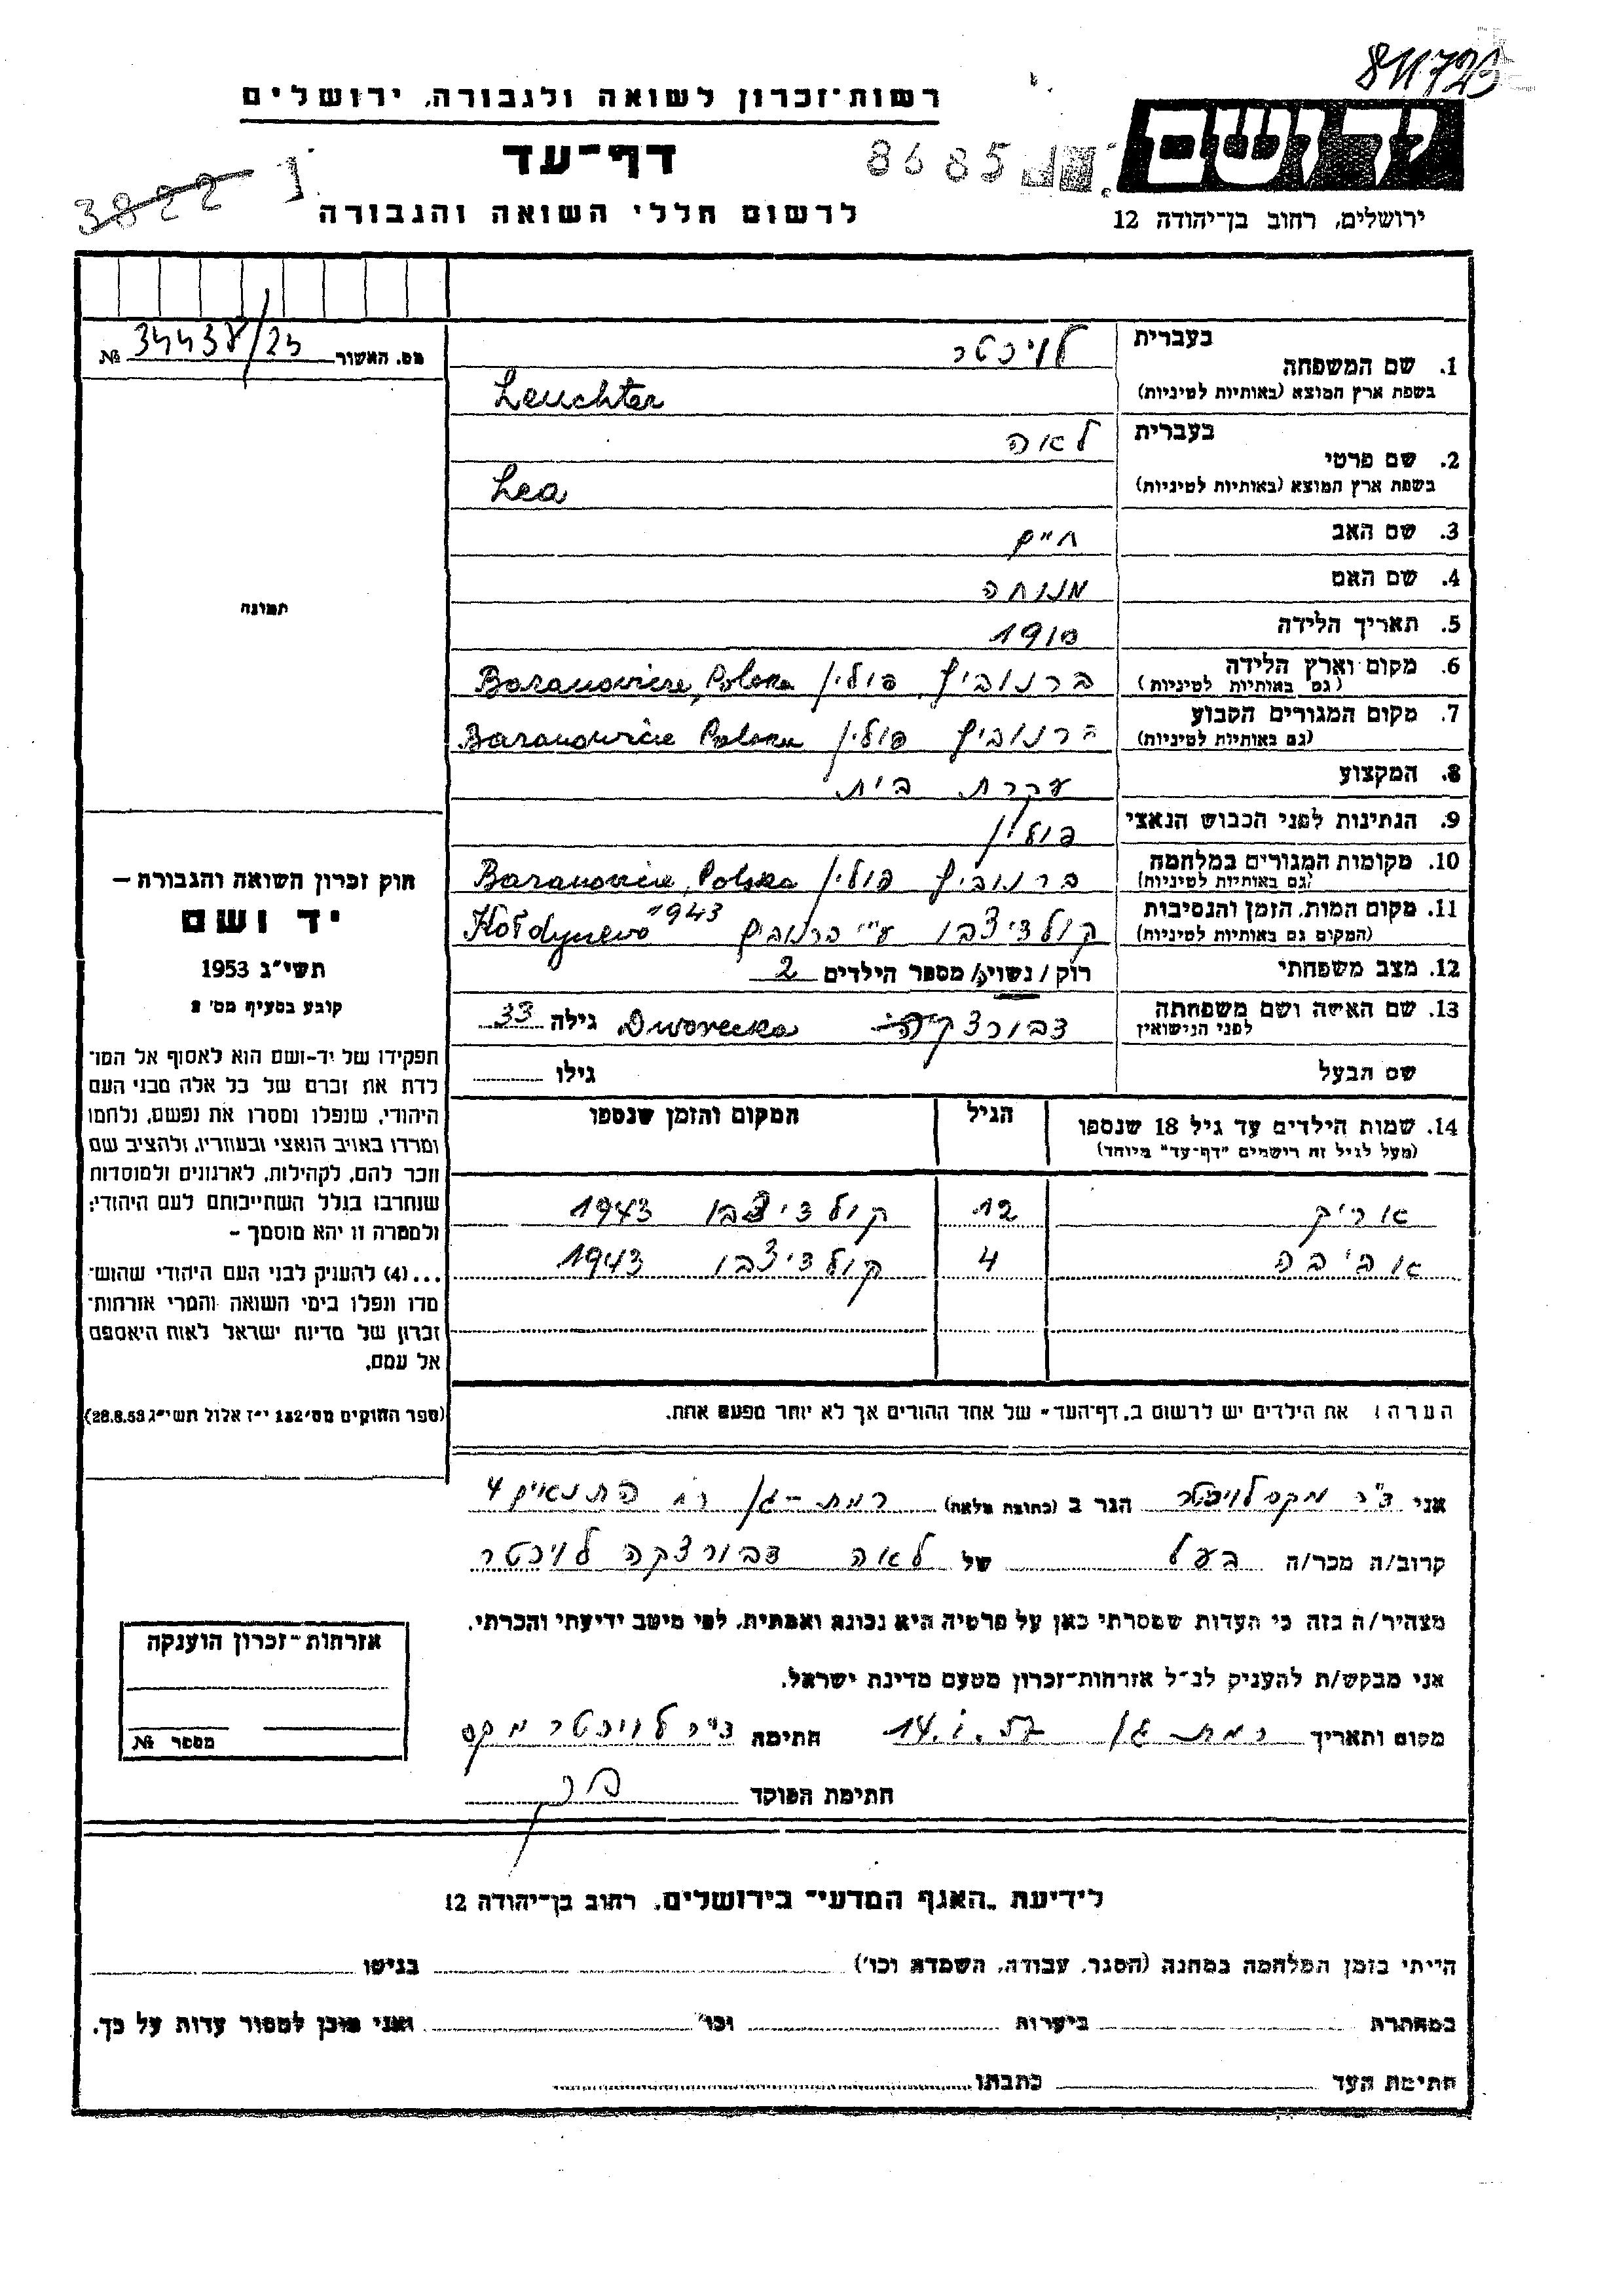 811723
רשות־זכרון לשואה ולגבורה, ירושלים
ידושם
דף־עד
8685
3822
לרשום חללי השואה והגבורה
ירושלים, רחוב בן־יהודה 12
מס. האשור 34438/25 №
בעברית לויכטר
1. שם המשפחה
בשפת ארץ המוצא (באותיות לטיניות) Leuchter
בעברית לאה
2. שם פרטי
בשפת ארץ המוצא (באותיות לטיניות) Lea
3. שם האב חיים
4. שם האם מנוחה
5. תאריך הלידה 1910
6. מקום וארץ הלידה ברנוביץ, פולין Baranowicze, Polska
(גם באותיות לטיניות)
7. מקום המגורים הקבוע ברנוביץ פולין Baranowicie Polska
(גם באותיות לטיניות)
8. המקצוע עקרת בית
9. הנתינות לפני הכבוש הנאצי פולין
10. מקומות המגורים במלחמה ברנוביץ פולין Baranowicie, Polska
(גם באותיות לטיניות)
11. מקום המות, הזמן והנסיבות קולדיצבו ע"י ברנוביץ 1943 Kołdynewo
(המקום גם באותיות לטיניות)
12. מצב משפחתי רוק / נשוי/ מספר הילדים 2
13. שם האישה ושם משפחתה דבורצקיה Dworecka גילה 33
לפני הנישואין
שם הבעל גילו
14. שמות הילדים עד גיל 18 שנספו הגיל המקום והזמן שנספו
(מעל לגיל זה רישמים "דף־עד" מיוחד)
אריק 12 קולדיצבו 1943
אביבה 4 קולדיצבו 1943
הערה: את הילדים יש לרשום ב„דף־העד" של אחד ההורים אך לא יותר מפעם אחת.
תמונה
חוק זכרון השואה והגבורה –
יד ושם
תשי"ג 1953
קובע בסעיף מס' 2
תפקידו של יד-ושם הוא לאסוף אל המו־
לדת את זכרם של כל אלה מבני העם
היהודי, שנפלו ומסרו את נפשם, נלחמו
ומרדו באויב הנאצי ובעוזריו, ולהציב שם
וזכר להם, לקהילות, לארגונים ולמוסדות
שנחרבו בגלל השתייכותם לעם היהודי;
ולמטרה זו יהא מוסמך –
...(4) להעניק לבני העם היהודי שהוש־
מדו ונפלו בימי השואה והמרי אזרחות־
זכרון של מדינת ישראל לאות היאספם
אל עמם.
(ספר החוקים מס' 132 י"ז אלול תשי"ג 28.8.53)
אני ד"ר מקס לויכטר הגר ב (כתובת מלאה) רמת-גן רח התנאים 4
קרוב/ה מכר/ה בעל של לאה דבורצקה לויכטר
מצהיר/ה בזה כי העדות שמסרתי כאן על פרטיה היא נכונה ואמתית, לפי מיטב ידיעתי והכרתי.
אני מבקש/ת להעניק לנ"ל אזרחות־זכרון מטעם מדינת ישראל.
מקום ותאריך רמת גן 14.I.57 חתימה ד"ר לויכטר מקס
חתימת הפוקד
אזרחות־זכרון הוענקה
מספר №
לידיעת „האגף המדעי" בירושלים, רחוב בן־יהודה 12
הייתי בזמן המלחמה במחנה (הסגר, עבודה, השמדה וכו') בגיטו
במחתרת ביערות וכו' ואני מוכן למסור עדות על כך.
חתימת העד כתבתו